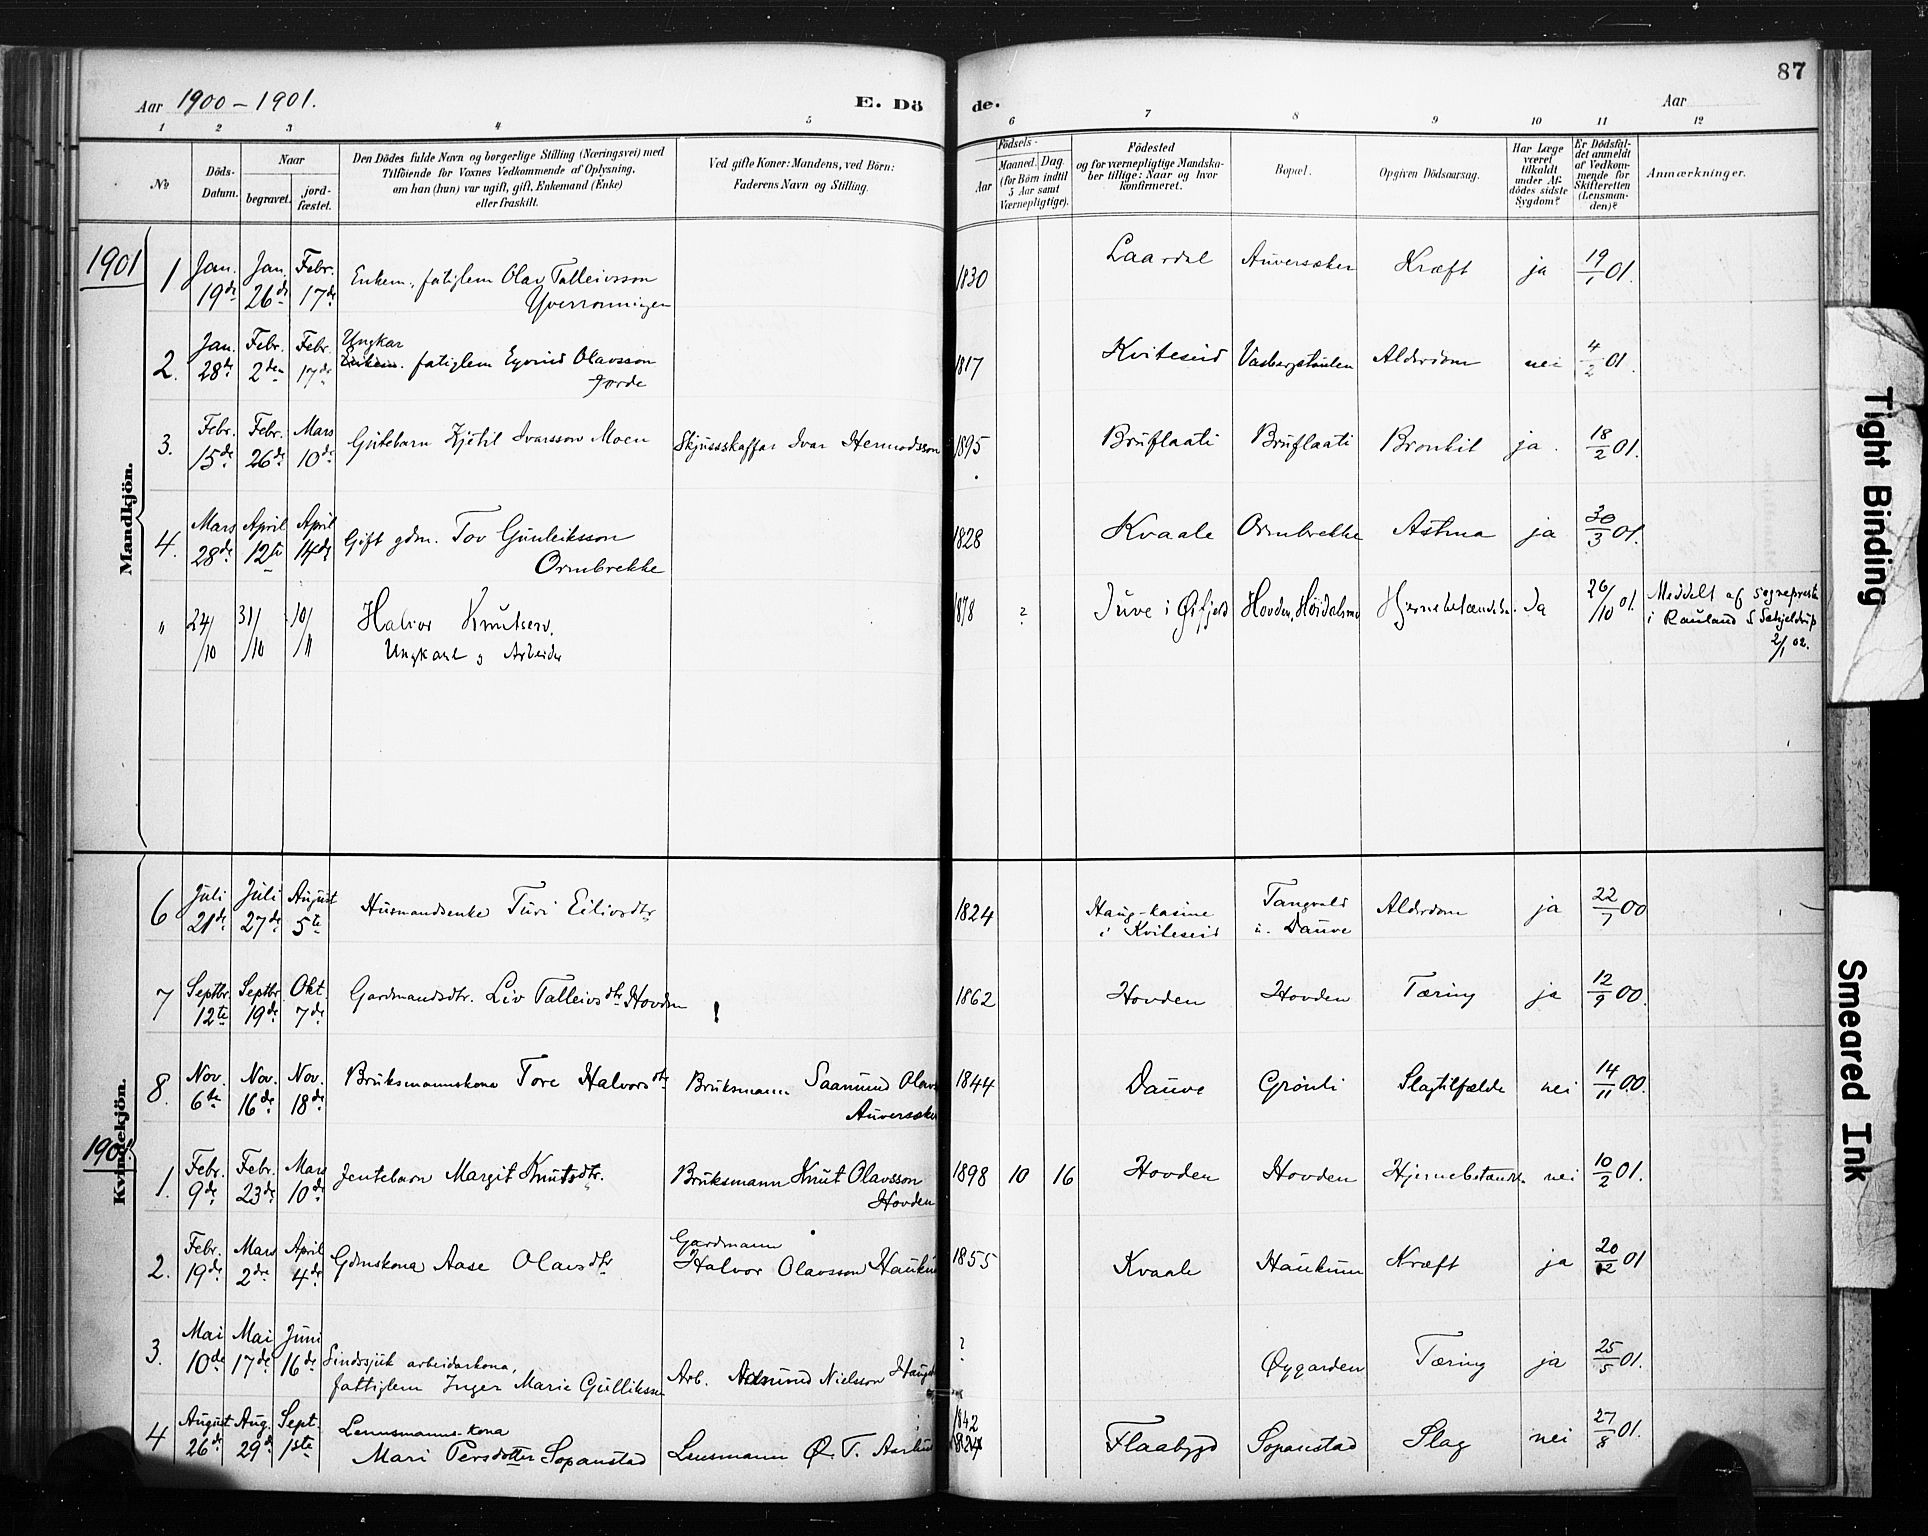 87
Aar 1900 - 1901.
E. Dö
de.
Aar
1 2 3 4 5 6 7 8 9 10 11 12
No
Döds-
Datum.
Naar
begravet.
jord-
fæstet.
Den Dödes fulde Navn og borgerlige Stilling (Næringsvei) med
Tilföiende for Voxnes Vedkommende af Oplysning,
om han (hun) var ugift, gift, Enkemand (Enke)
eller fraskilt.
Ved gifte Koner: Mandens, ved Börn:
Faderens Navn og Stilling.
Födsels-
Aar
Maaned.
Dag.
(for Börn indtil
5 Aar samt
Værnepligtige).
Födested
og for værnepligtige Mandska-
ber tillige: Naar og hvor
konfirmeret.
Bopæl.
Opgiven Dödsaarsag.
Har Læge
været
tilkaldt
under Af-
dödes sidste
Sygdom?
Er Dödsfal-
det anmeldt
af Vedkom-
mende for
Skifteretten
(Lensman-
den)?
Anmærkninger.
Mandkjön.
1901
1 Jan. 19de Jan. 26de Febr. 17de Enkem. fatiglem Olav Talleivsson 1830 Laardal Auversæker Kræft ja 19/1 01.
Yverronningen
2. Jan. 28de Febr. 2den Febr. 17de Ungkar
Enkem. fatiglem Eyvind Olavsson 1817 Kviteseid Alderdom nei 4/2 01.
Jorde
3. Febr. 15de Febr. 26de Mars 10de Gutebarn Kjetil Ivarsson Moen Skjussskaffar Ivar Hermodsson 1895 Bruflaati Bruflaati Bronkit ja. 18/2 01.
4. Mars 28de April 12te April 14de Gift gdm. Tov Gunleiksson 1828 Kvaale Ormbrekke Astma ja 30/3 01.
Ormbrekke
" 24/10 31/10 10/11 Halvor Knutsen, 1878 ? Juve i Øifjeld Hovden, Høidalsmo Hjernebetændelse. Ja 26/10 01. Meddelt af sognepresten
i Rauland
2/1 02.
Ungkarl og Arbeider
Kvindekjön.
6 Juli 21de Juli 27de August 5te Husmandsenke Turi Eilivsdtr 1824 Haug-kasine
i Kviteseid
Tangvald
u. Dauve
Alderdom ja 22/7 00
7 Septbr. 12te Septbr. 19de Okt. 7de Gardmandsdtr. Liv Talleivsdtr. Hovden ! 1862 Hovden Hovden Tæring ja 12/9 00.
8. Nov. 6te Nov. 16de Nov. 18de Bruksmannskona Tore Halvorsdtr Bruksmann Saamund Olavs 1844 Dauve Grönli Slagtilfælde nei 14/11 00.
Auversæker
1901.
1. Febr. 9de Febr. 23de Mars 10de Jentebarn Margit Knutsdtr. Bruksmann Knut Olavsson 1898 10 16 Hovden Hovden Hjernebetændelse nei 10/2 01.
Hovden
2. Febr. 19de Mars 2den April 4de Gdmskona Aase Olavsdtr Gardmann
Halvor Olavsson Haukum 1855 Kvaale Haukum Kræft ja 20/2 01
3. Mai 10de Mai 17de Juni 16de Sindssjuk arbeidarkona,
fattiglem Inger Marie Gulliksen Arb. Nielsson ? Øygarden Tæring ja 25/5 01.
4 August 26de Aug. 29de Sept. 1ste Lennsmanns-kona
Mari Persdotter Sopanstad Lensmann Ø. T. 1842
1824 Flaabygd Sopanstad Slag nei 27/8 01.
Tight Binding
Smeared Ink